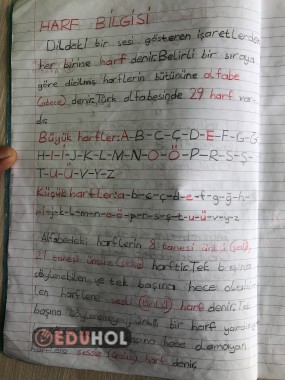 HARF BİLGİSİ
Dildeki bir sesi gösteren işaretlerden
her birine harf denir. Belirli bir sıraya
göre dizilmiş harflerin bütününe alfabe
(abece) denir. Türk alfabesinde 29 harf var-
dır.
Büyük harfler: A-B-C-Ç-D-E-F-G-Ğ
H-I-İ-J-K-L-M-N-O-Ö-P-R-S-Ş-
T-U-Ü-V-Y-Z
Küçük harfler: a-b-c-ç-d-e-f-g-ğ-h-
ı-i-j-k-l-m-n-o-ö-p-r-s-ş-t-u-ü-v-y-z
Alfabedeki harflerin 8 tanesi ünlü (sesli),
21 tanesi ünsüz (sessiz) harftir. Tek başına
söylenebilen ve tek başına hece olabilen
len harflere sesli (ünlü) harf denir. Tek
başına bir harf
başına hece olamayan
sessiz (ünsüz) harf denir.
EDUHOL